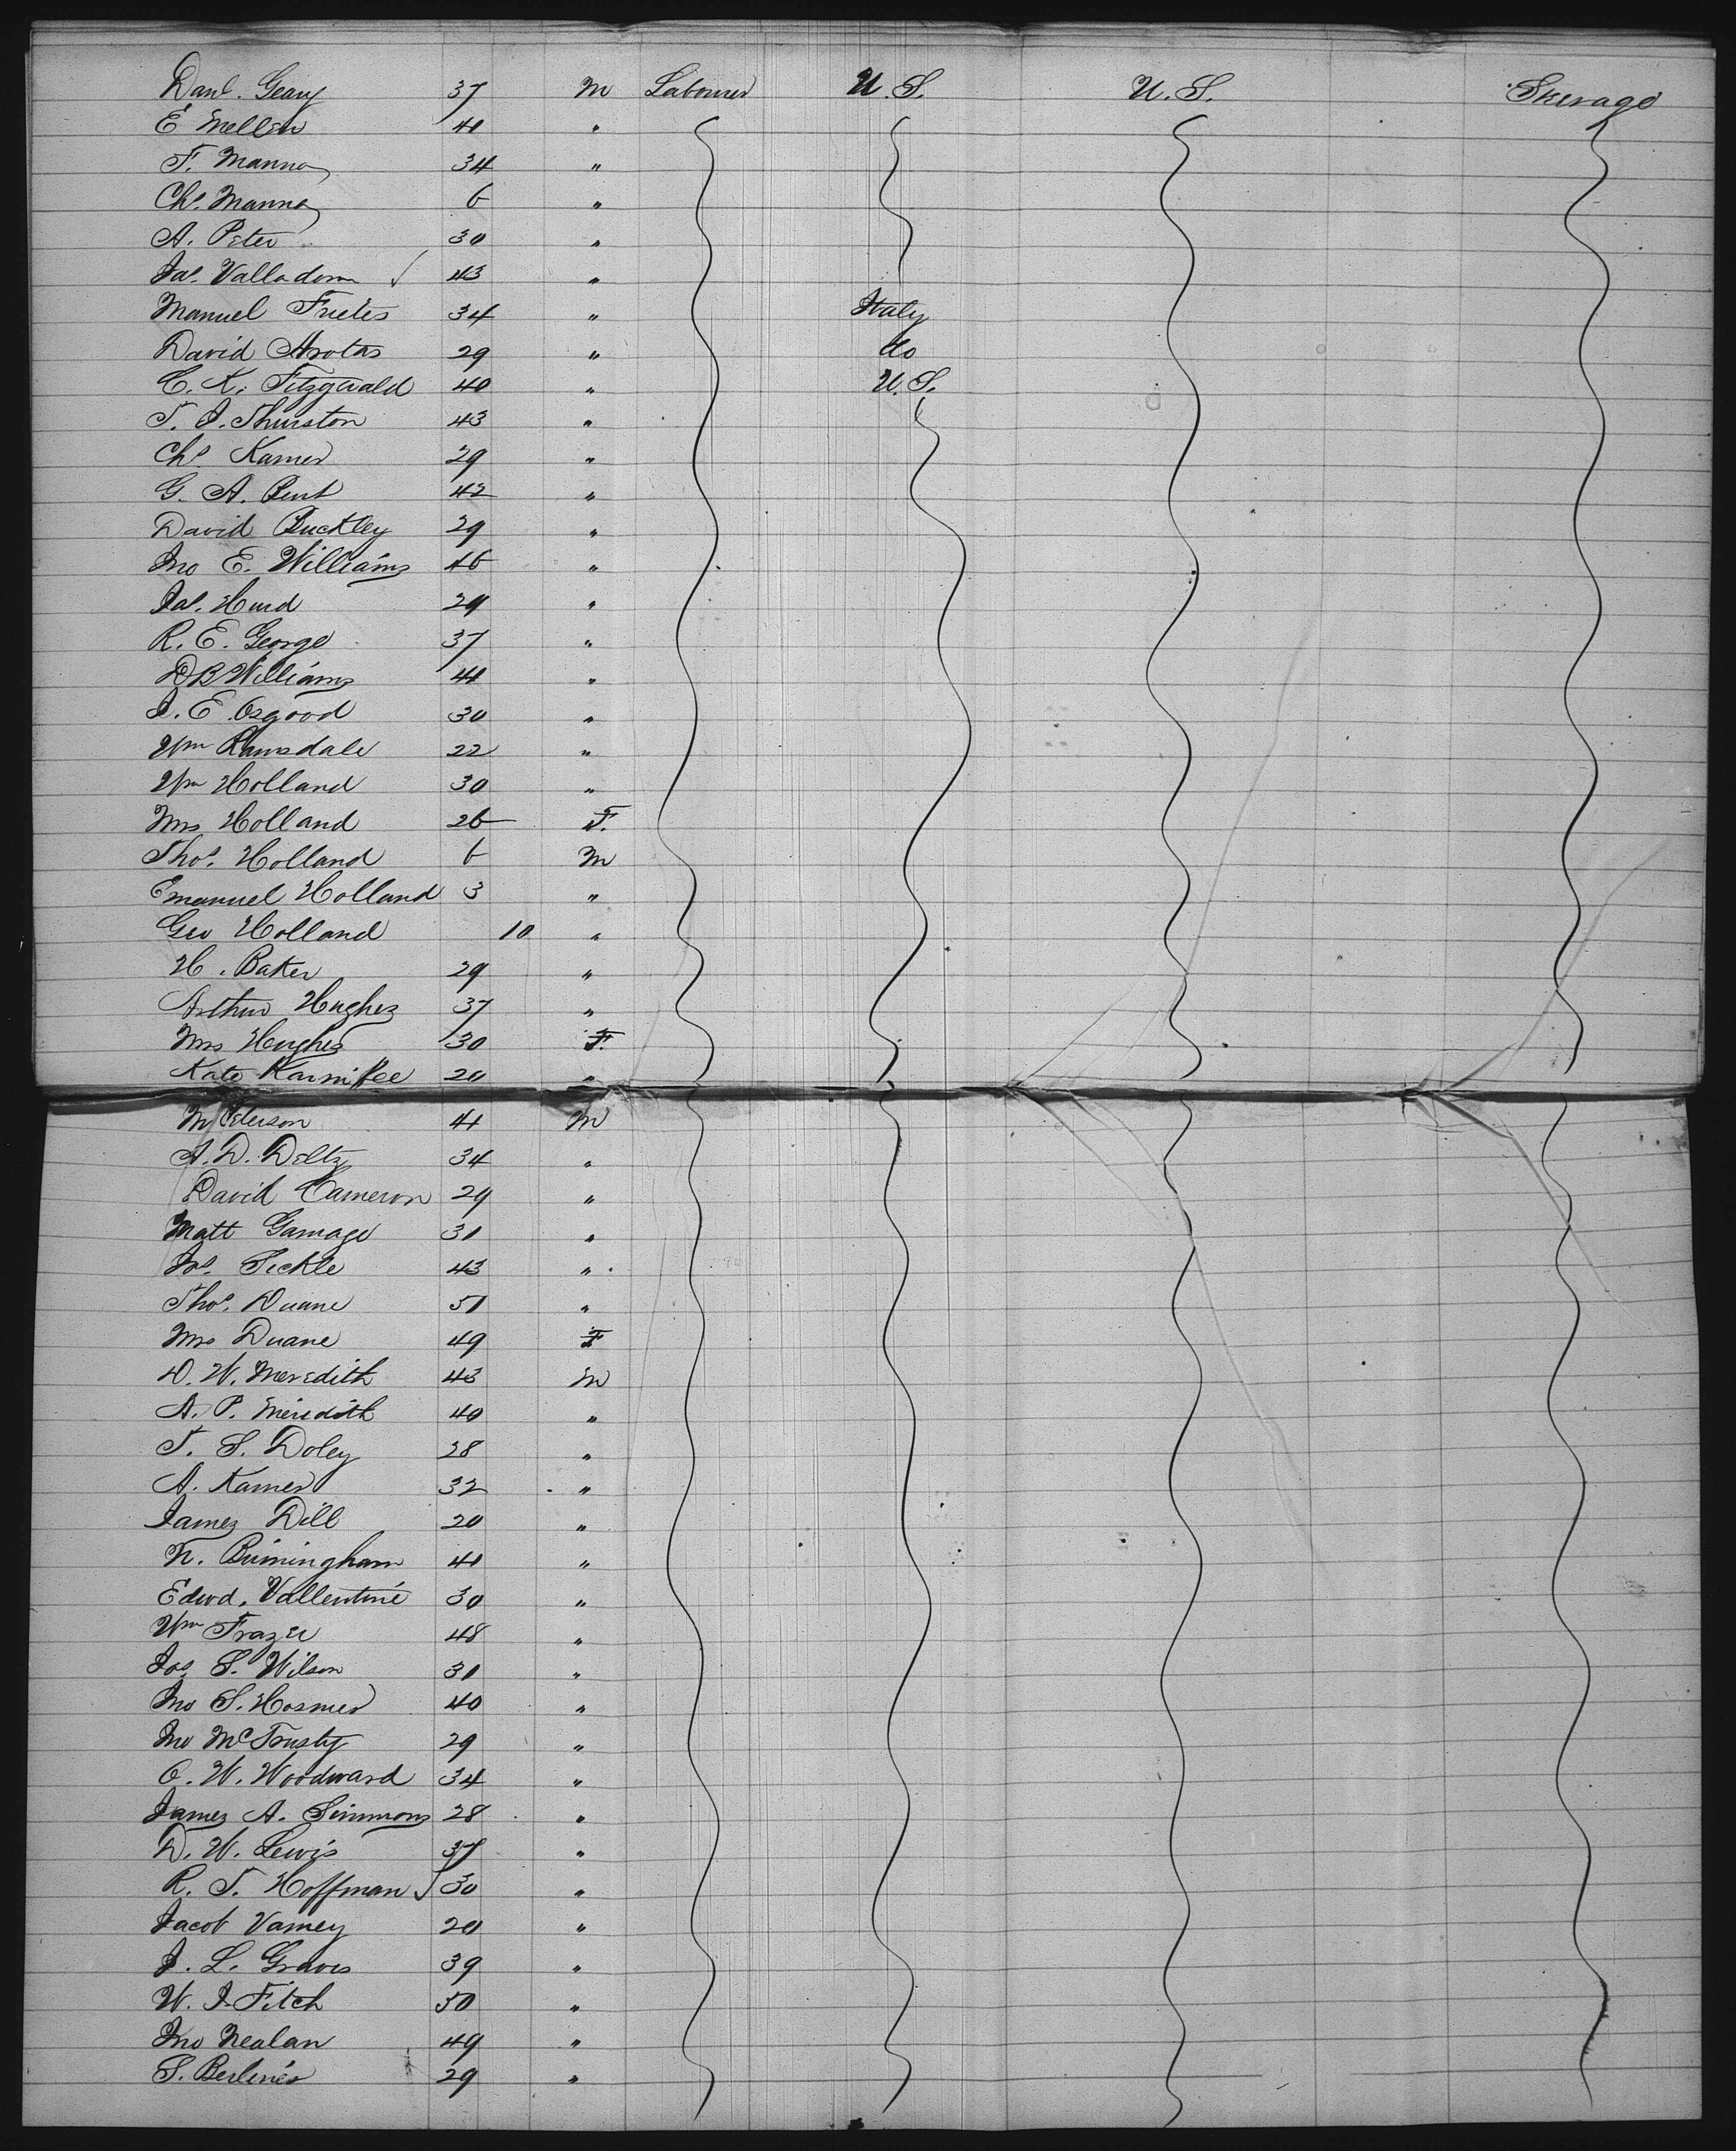 Danl. Geary 37 M Labourer U.S. U.S. Sterage
E Mellen 41 "
F. Manna 34 "
Chs. Manna 6 "
A. Peter 30 "
Jas. Valladom 43 "
Manuel Frietes 34 " Italy
David Arotas 29 " do
C. K. Fitzgerald 40 " U.S.
T. J. Thurston 43 "
Chs Kamer 29 "
G. A. Bent 42 "
David Buckley 29 "
Jno E. Williams 46 "
Jas. Hurd 29 "
R. E. George 37 "
DB Williams 41 "
J. E. Osgood 30 "
Wm Ramsdale 22 "
Wm Holland 30 "
Mrs Holland 26 F.
Thos. Holland 6 M
Emanuel Holland 3 "
Geo Holland 10 "
H. Baker 29 "
Arthur Hughes 37 "
Mrs Hughes 30 F.
Kate 20 "
41 M
A. D. Deltz 34 "
David Cameron 29 "
Matt Gamage 31 "
Jos. Sickle 43 "
Thos. Duane 51 "
Mrs Duane 49 F
D. W. Meredith 43 M
A. P. Meredith 40 "
T. S. Doley 28 "
A. Kamer 32 "
James Dill 20 "
N. Birmingham 41 "
Edwd. Vallentine 30 "
Wm Frazer 48 "
Jos. S. Wilson 31 "
Jno S. Hosmer 40 "
Jno McTrusty 29 "
O. W. Woodward 34 "
James A. Simmons 28 "
D. W. Lewis 37 "
R. T. Hoffman 30 "
Jacob Varney 20 "
J. L. Graves 39 "
W. J. Fitch 50 "
Jno Nealan 49 "
S. Berliner 29 "